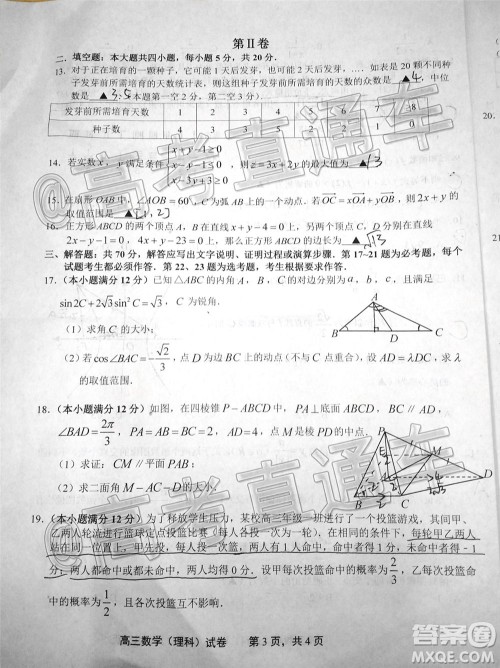 第Ⅱ卷
二、填空题：本大题共四小题，每小题5分，共20分．
13. 对于正在培育的一颗种子，它可能1天后发芽，也可能2天后发芽，……
发芽前所需培育天数的统计表，则这组种子发芽前所需培育天数的众数是 ▲ 4，中位
数是 ▲ 3.5．（本题第一空2分，第二空3分）．
发芽前所需培育天数 1 2 3 4 5 6 7 ≥8
种子数 4 3 3 5 2 2 1 0
x+y-1≥0
14. 若实数x，y满足条件 x-y-1≤0，则z=3x+2y的最大值为 ▲ 13
x-3y+3≥0
15. 在扇形OAB中，∠AOB=60°，C为弧AB上的一个动点．若OC=xOA+yOB，则2x+y的
取值范围是 ▲ [1,2]
16. 正方形ABCD的两个顶点A，B在直线x+y-4=0上，另两个顶点C，D分别在直线
2x-y-1=0，4x+y-23=0上，那么正方形ABCD的边长为 ▲
三、解答题：共70分，解答应写出文字说明、证明过程或演算步骤．第17~21题为必考题，每个
试题考生都必须作答．第22、23题为选考题，考生根据要求作答．
17.（本小题满分12分）已知△ABC的内角A，B，C的对边分别为a，b，c，且满足
sin2C+2√3sin²C=√3，C为锐角．
（1）求角C的大小；
（2）若cos∠BAC=-√2/3，点D为边BC上的动点（不与C点重合），设AD=λDC，求λ
的取值范围．
A
B D C
18.（本小题满分12分）如图，在四棱锥P-ABCD中，PA⊥底面ABCD，BC∥AD，
∠BAD=2π/3，PA=AB=BC=2，AD=4，点M是棱PD的中点．
（1）求证：CM∥平面PAB；
（2）求二面角M-AC-D的大小．
P
E M
A D
B C
19.（本小题满分12分）为了释放学生压力，某校高三年级一班进行了一个投篮游戏，其间甲、
乙两人轮流进行篮球定点投篮比赛（每人各投一次为一轮）．在相同的条件下，每轮甲乙两人
站在同一位置上，甲先投，每人投一次篮，两人有1人命中，命中者得1分，未命中者得-1
分；两人都命中或都未命中，两人均得0分．设甲每次投篮命中的概率为2/3，乙每次投篮命
中的概率为1/2，且各次投篮互不影响．
高三数学（理科）试卷 第3页，共4页
20.
高考直通车
高考直通车